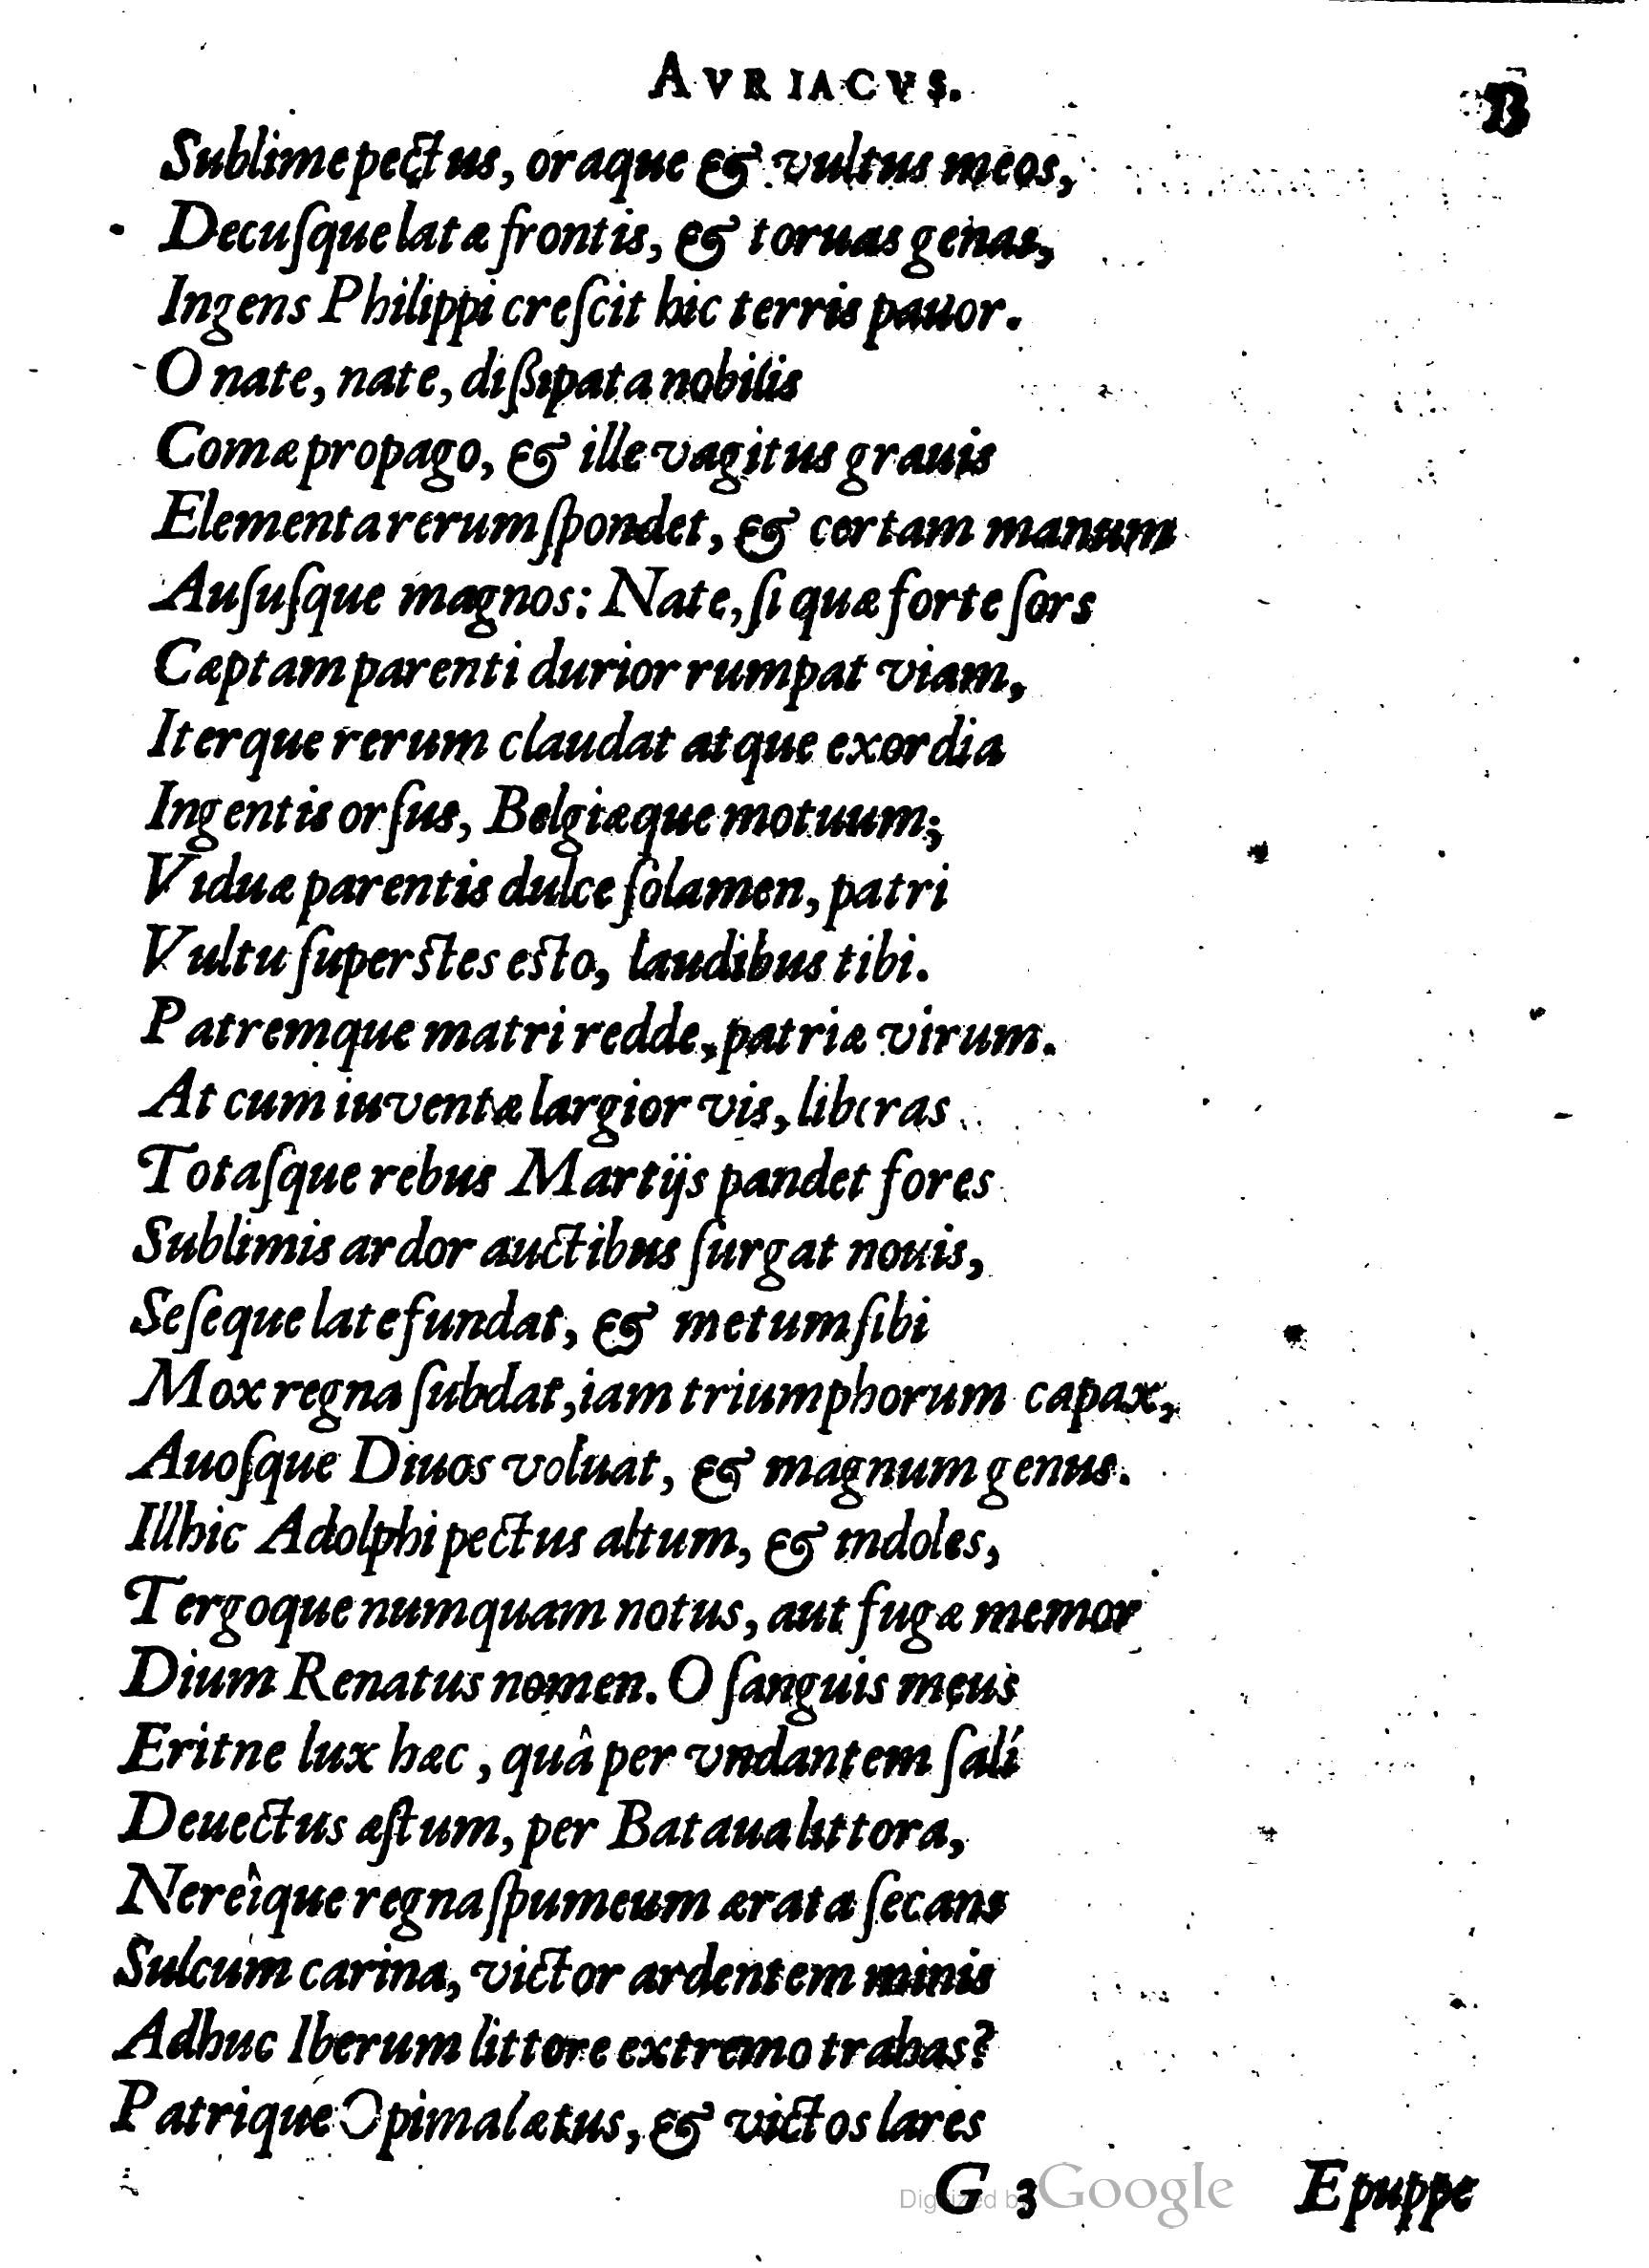 AVRIACVS. 13
Sublime pectus, oraque & vultus meos,
Decuſque latæ frontis, & toruas genas,
Ingens Philippi creſcit hic terris pauor.
O nate, nate, diſsipata nobilis
Comæ propago, & ille vagitus grauis
Elementa rerum ſpondet, & certam manum
Auſuſque magnos: Nate, ſi quæ forte ſors
Cæptam parenti durior rumpat viam,
Iterque rerum claudat atque exordia
Ingentis orſus, Belgiæque motuum;
Viduæ parentis dulce ſolamen, patri
Vultu ſuperstes esto, laudibus tibi.
Patremque matri redde, patriæ virum.
At cum iuventæ largior vis, liberas
Totaſque rebus Martijs pandet fores
Sublimis ardor auctibus ſurgat nouis,
Seſeque late fundat, & metum ſibi
Mox regna ſubdat, iam triumphorum capax,
Auoſque Diuos voluat, & magnum genus.
Illhic Adolphi pectus altum, & indoles,
Tergoque numquam notus, aut fugæ memor
Dium Renatus nomen. O ſanguis meus
Eritne lux hæc, quâ per vndantem ſali
Deuectus æſtum, per Bataua littora,
Nereîque regna ſpumeum ærata ſecans
Sulcum carina, victor ardentem minis
Adhuc Iberum littore extremo trahas?
Patrique Opima lætus, & victos lares
G 3 E puppe
Digitized by Google